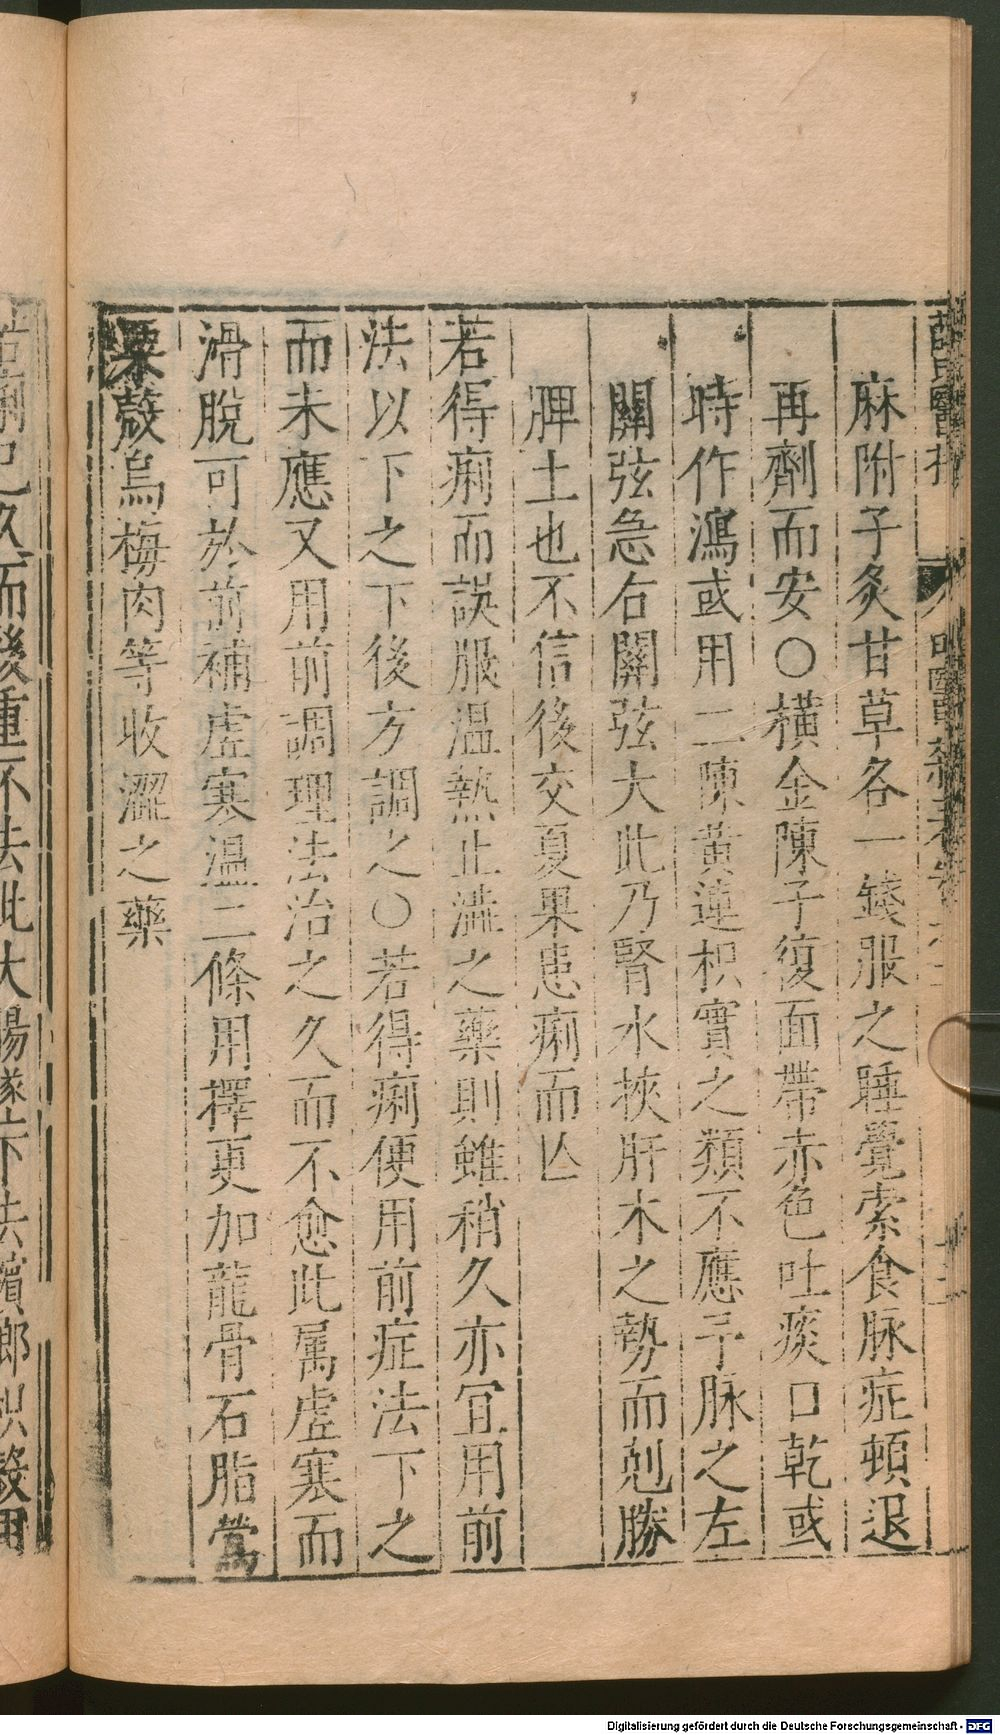 麻附子炙甘草各一錢服之睡覺索食脉症頓退
再劑而安○橫金陳子復面帶赤色吐痰口乾或
時作瀉或用二陳黃連枳實之類不應予脉之左
關弦急右關弦大此乃腎水挾肝木之勢而剋勝
脾土也不信後交夏果患痢而亾
若得痢而誤服温熱止澁之藥則雖稍久亦宜用前
法以下之下後方調之○若得痢便用前症法下之
而未應又用前調理法治之久而不愈此属虛寒而
滑脫可於前補虛寒温二條用擇更加龍骨石脂罂
粟殼烏梅肉等收澀之藥
已久而後重不去此大腸墜下去檳榔枳殼用
Digitalisierung gefördert durch die Deutsche Forschungsgemeinschaft - DFG